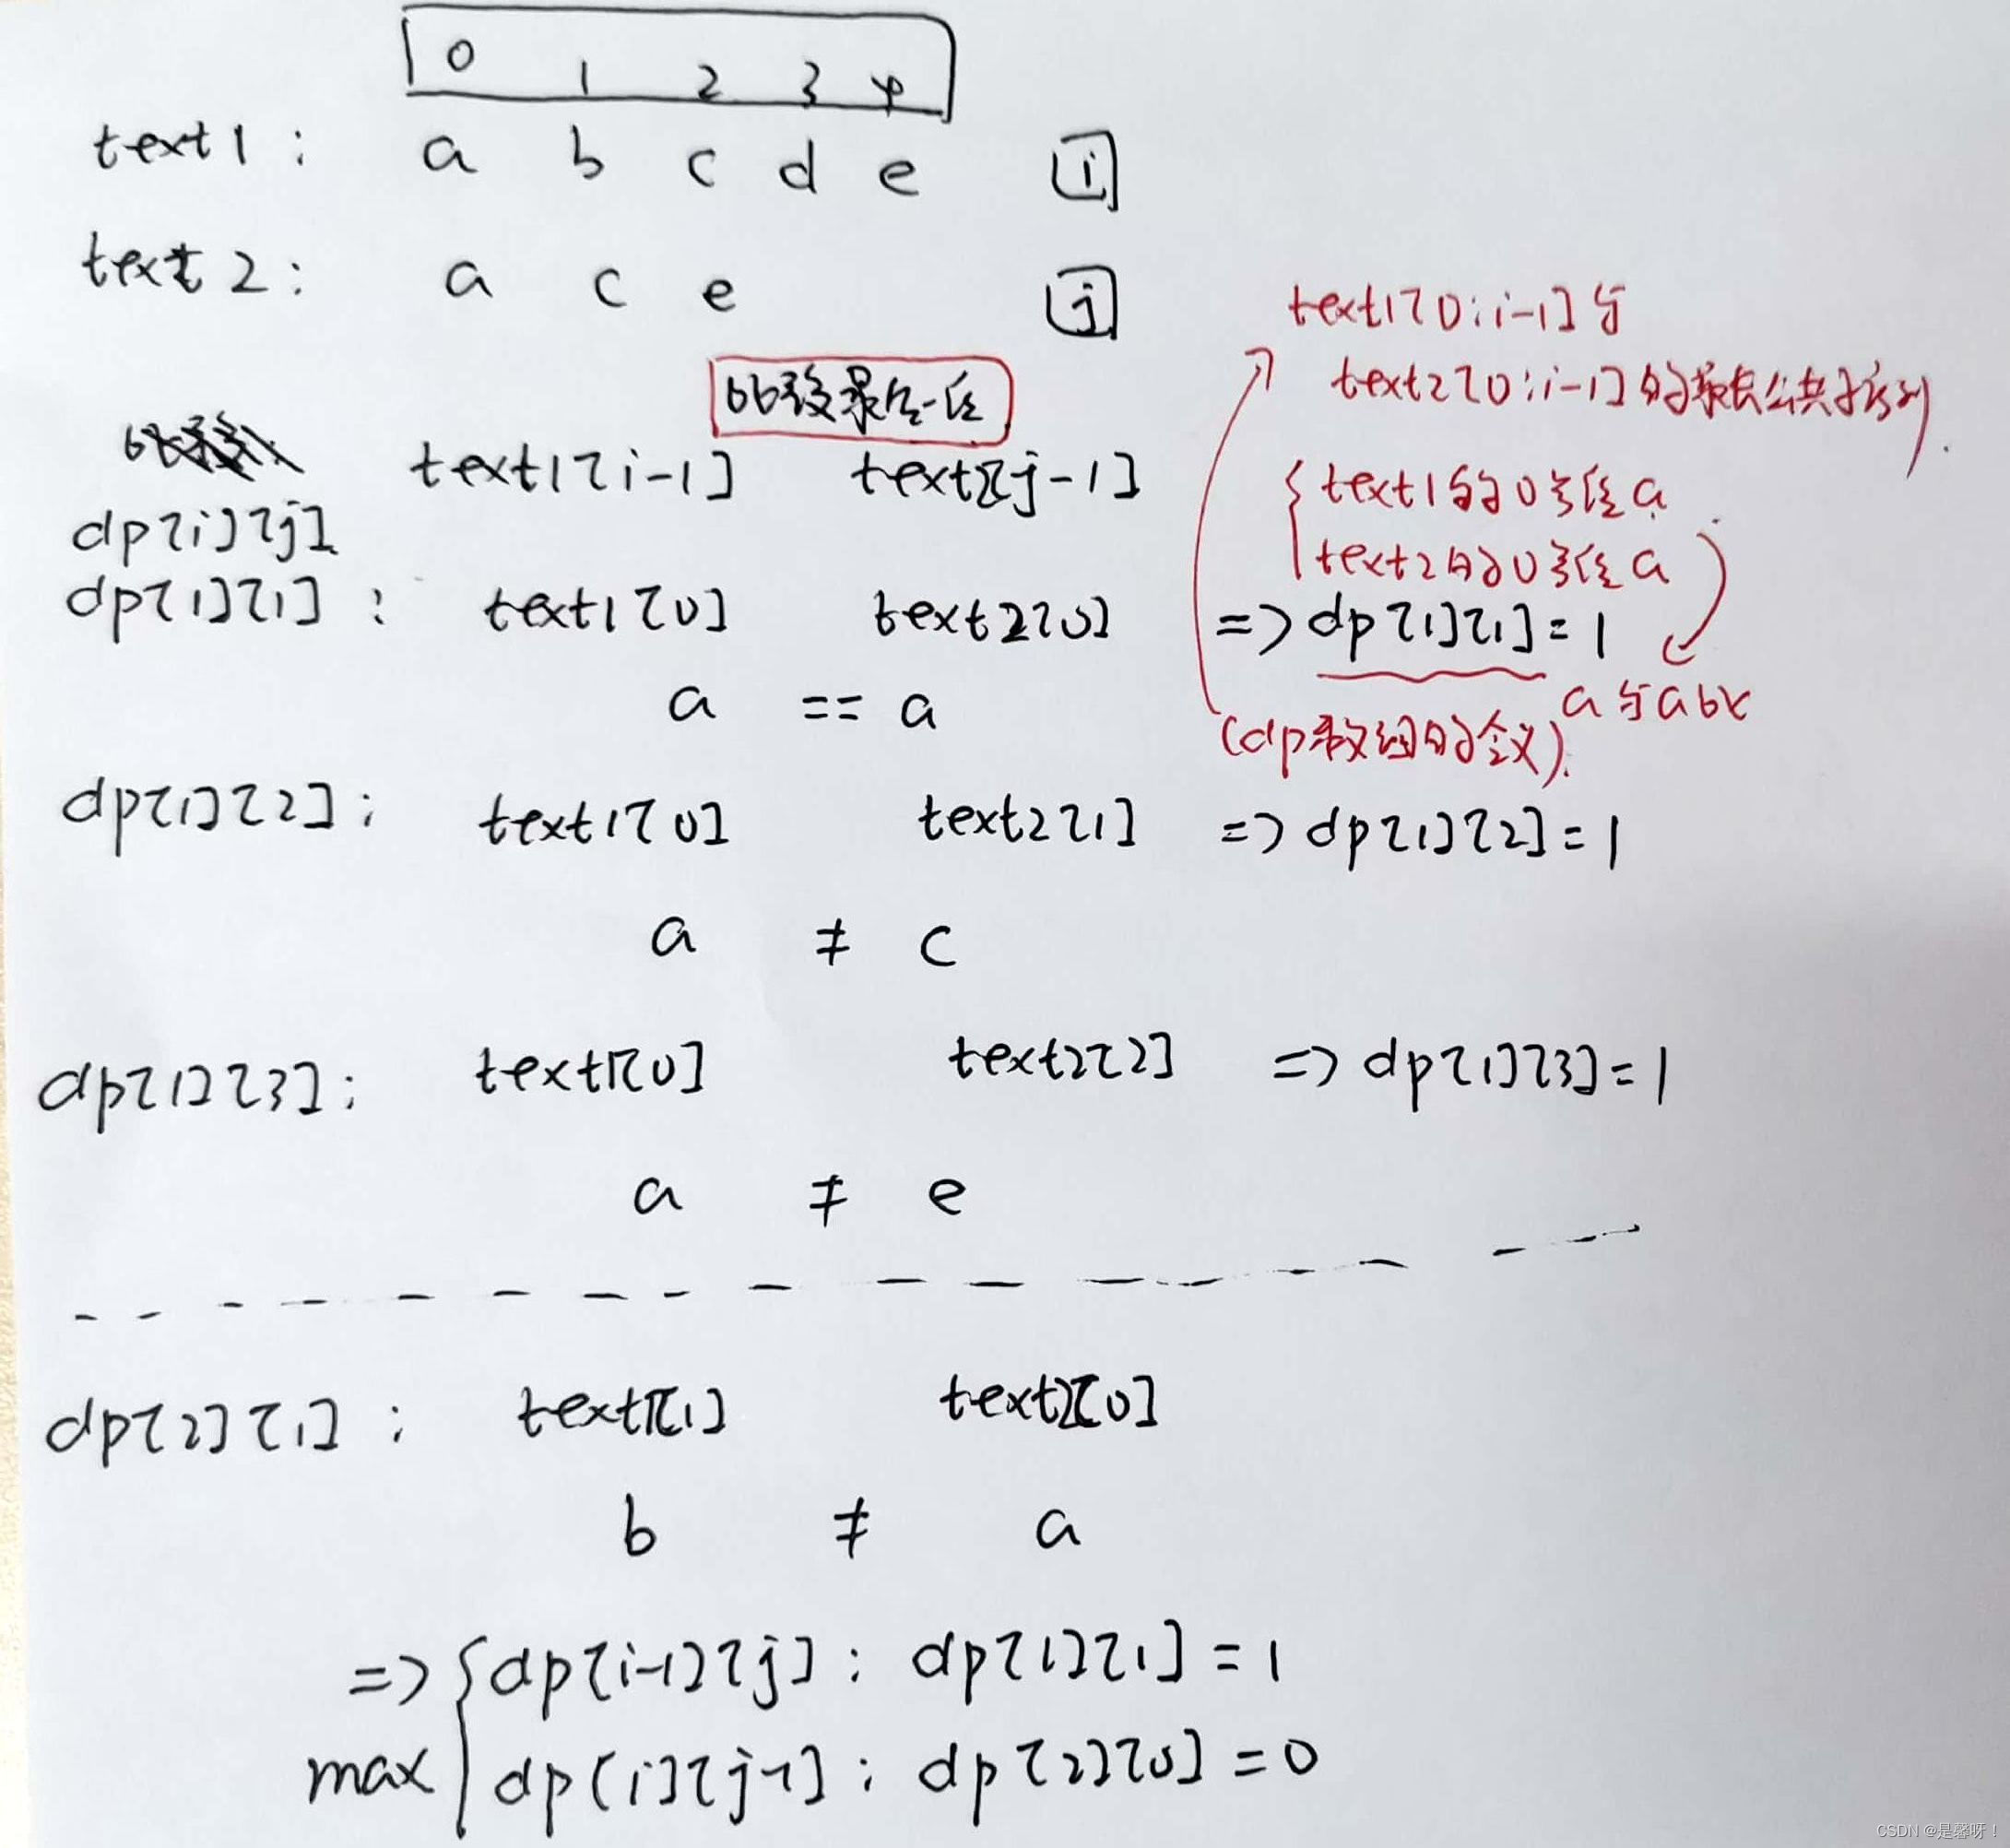 0 1 2 3 4
text1: a b c d e i
text2: a c e j
text1[0:i-1]与
text2[0:i-1]的最长公共子序列.
bb较最后一位
text1[i-1] text2[j-1]
dp[i][j]
text1的0号位a
text2的0号位a
dp[1][1]: text1[0] text2[0] => dp[1][1]=1
a == a
a与a比较
(dp数组的含义).
dp[1][2]: text1[0] text2[1] => dp[1][2]=1
a ≠ c
dp[1][3]: text1[0] text2[2] => dp[1][3]=1
a ≠ e
dp[2][1]: text1[1] text2[0]
b ≠ a
=> { dp[i-1][j]: dp[1][1]=1
max dp[i][j-1]: dp[2][0]=0
CSDN @是馨呀！